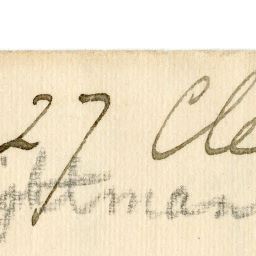 27 Cle
ghtman